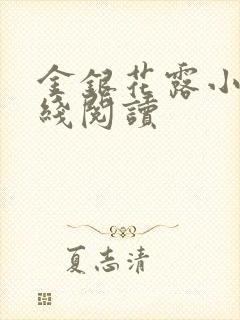 金銀花露小
綫閱讀
夏志清